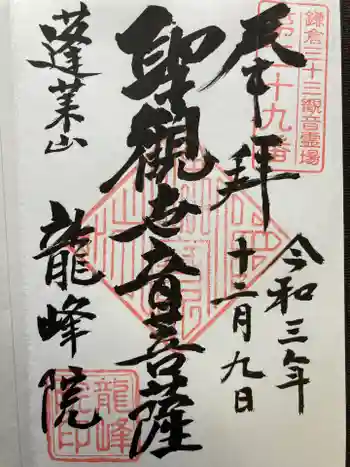 鎌倉三十三観音霊場
第二十九番
奉拝
令和三年
十二月九日
聖観世音菩薩
蓬莱山
龍峰院
龍峰
院印